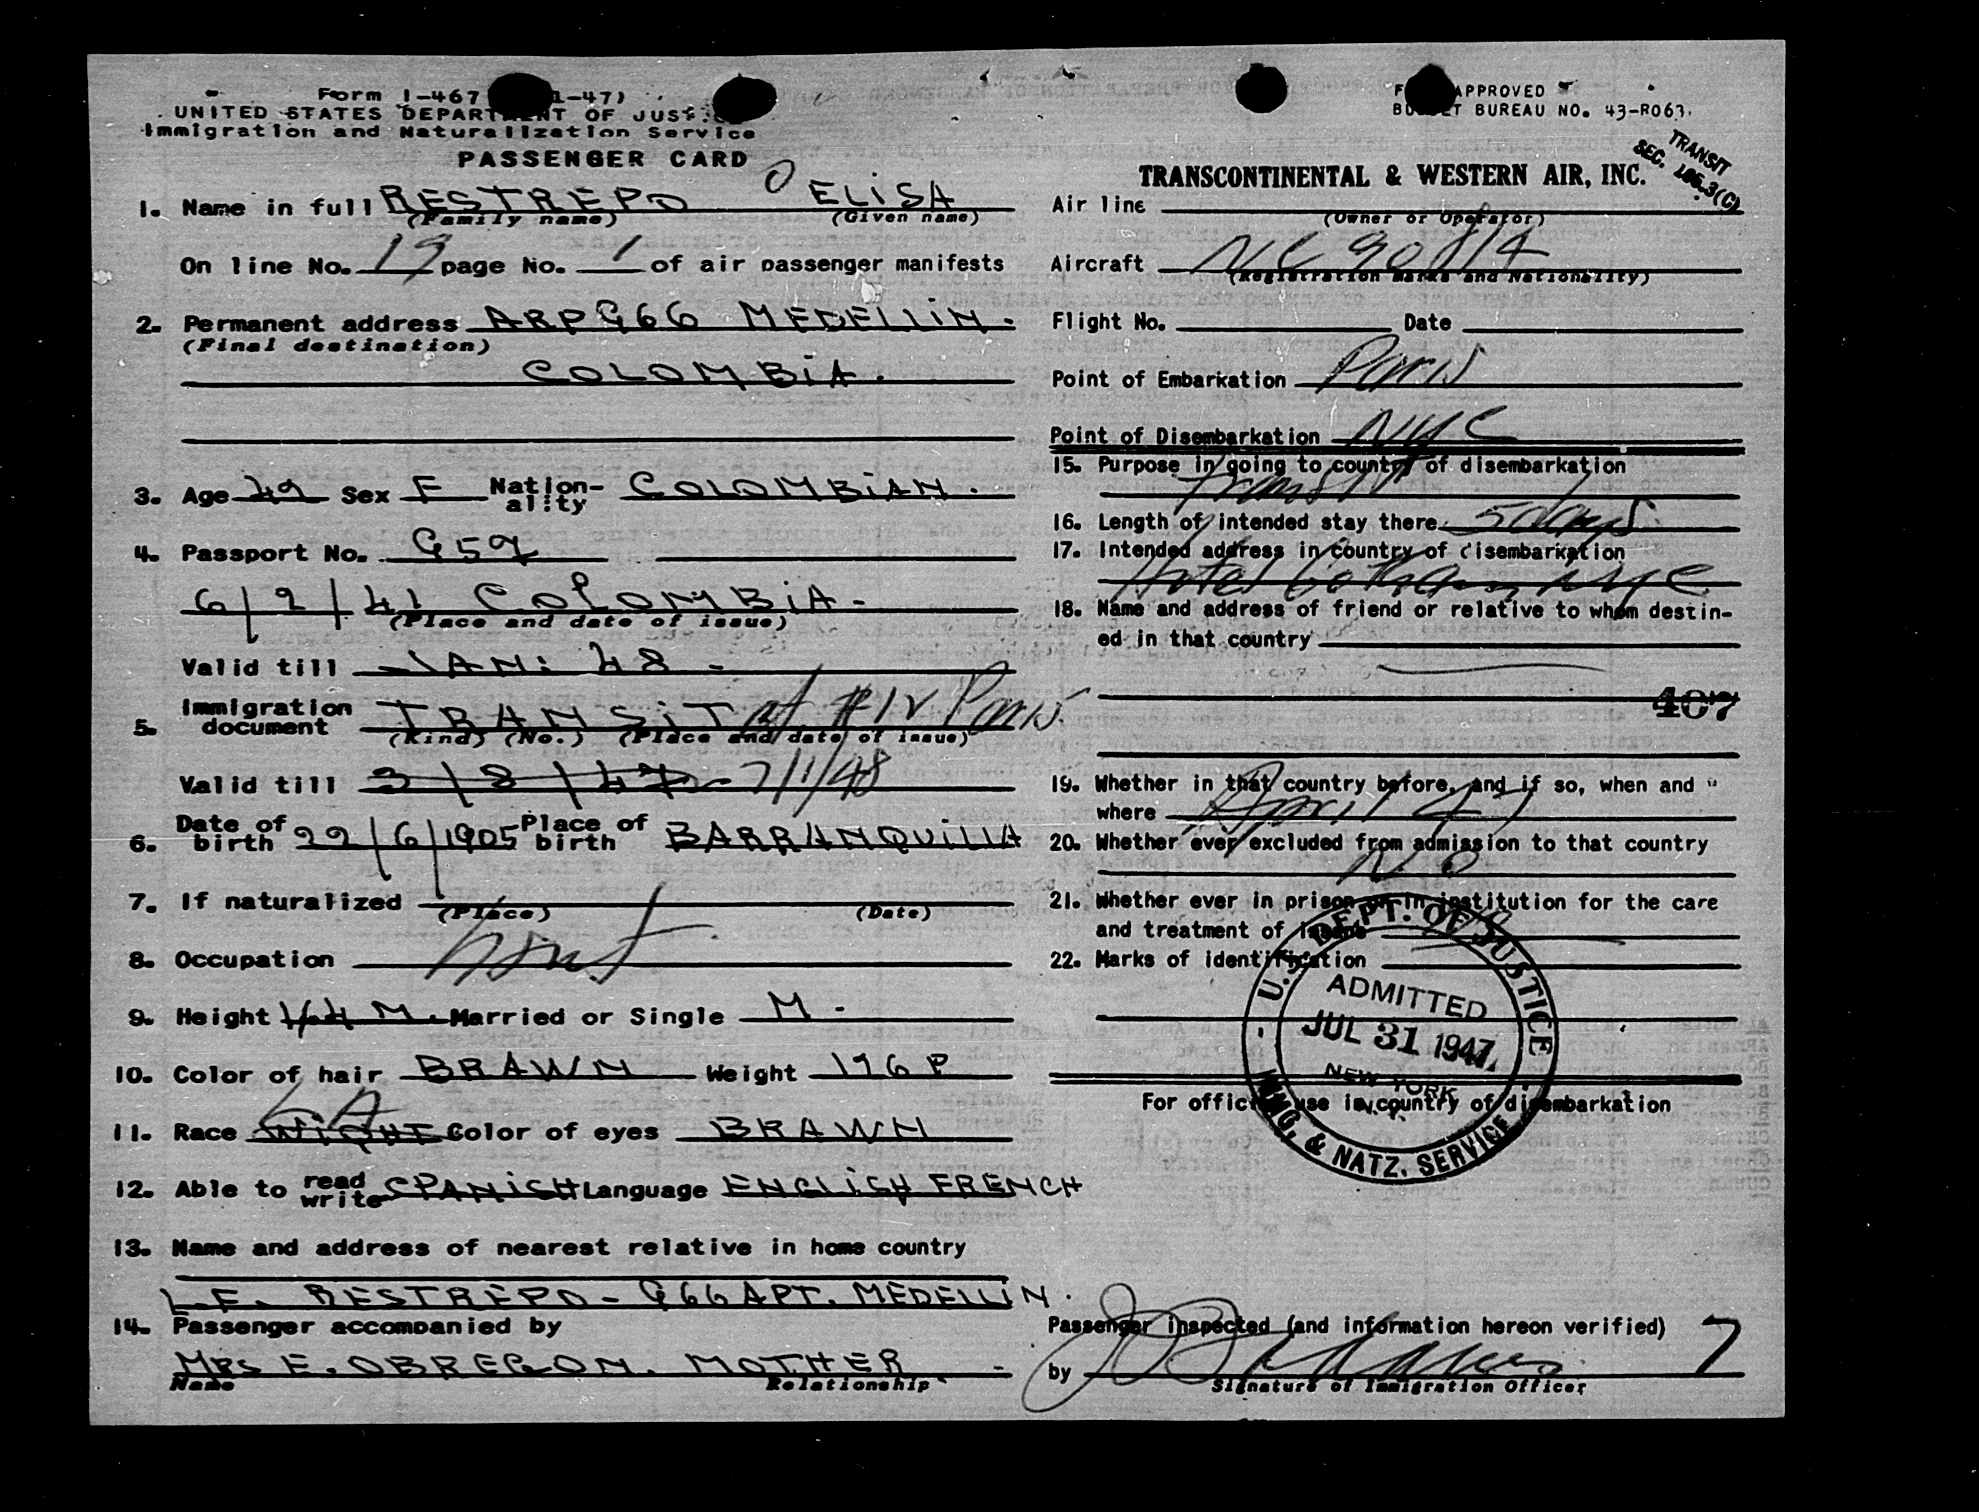 Form I-467 1-47)
UNITED STATES DEPARTMENT OF JUST
Immigration and Naturalization Service
PASSENGER CARD
1. Name in full RESTREPO O ELISA
(Family name) (Given name)
On line No. 19 page No. 1 of air passenger manifests
2. Permanent address 966 MEDELLIN.
(Final destination)
COLOMBIA.
3. Age 42 Sex F Nation-ality COLOMBIAN.
4. Passport No. 959
6/2/41 COLOMBIA-
(Place and date of issue)
Valid till JAN: 48 -
5. Immigration document TRANSIT #12 Paris
(Kind) (No.) (Place and date of issue)
Valid till 3/8/47 - 7/1/48
6. Date of birth 22/6/1905 Place of birth BARRANQUILLA
7. If naturalized
(Place) (Date)
8. Occupation
9. Height 1.64 M. Married or Single M -
10. Color of hair BRAWN Weight 126 P
LA
11. Race Color of eyes BRAWN
12. Able to read write SPANISH Language ENGLISH FRENCH
13. Name and address of nearest relative in home country
L.E. RESTREPO - 966 APT. MEDELLIN.
14. Passenger accompanied by
MRS E. OBREGON. MOTHER -
Name Relationship
APPROVED
BUREAU NO. 43-R063.
TRANSIT
SEC. 186.3(C)
TRANSCONTINENTAL & WESTERN AIR, INC.
Air line
(Owner or Operator)
Aircraft NC 90814
(Registration Marks and Nationality)
Flight No. Date
Point of Embarkation Paris
Point of Disembarkation NYC
15. Purpose in going to country of disembarkation
Transit
16. Length of intended stay there 5 days
17. Intended address in country of disembarkation
Hotel Gotham NYC
18. Name and address of friend or relative to whom destin-
ed in that country
407
19. Whether in that country before, and if so, when and
where April 47
20. Whether ever excluded from admission to that country
No
21. Whether ever in prison or in institution for the care
and treatment of insane No
22. Marks of identification
U.S. DEPT. OF JUSTICE
ADMITTED
JUL 31 1947
NEW YORK
N.Y.
IMMG. & NATZ. SERVICE
For official use in country of disembarkation
Passenger inspected (and information hereon verified) 7
by
Signature of Immigration Officer